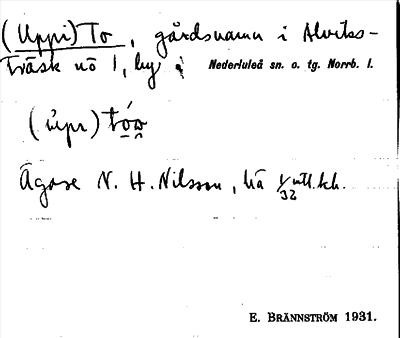 (Uppi) To, gårdsnamn i Alvits-
träsk nö 1, by i Nederluleå sn. o. tg. Norrb. l.
(ùpı) tów
Ägare N. H. Nilsson, hå 1/32 mtl. kh.
E. BRÄNNSTRÖM 1931.